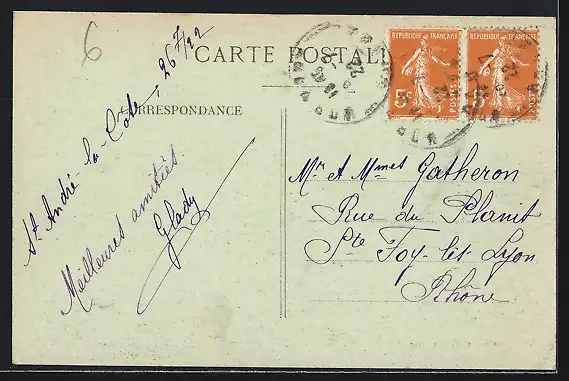 6
CARTE POSTALE
CORRESPONDANCE
St André-la-Côte, 26 7/22
Meilleures amitiés.
Glady
RÉPUBLIQUE FRANÇAISE
5c
POSTES
RÉPUBLIQUE FRANÇAISE
POSTES
Mr et Mmes Gatheron
Rue du Planit
Ste Foy-lès-Lyon
Rhône